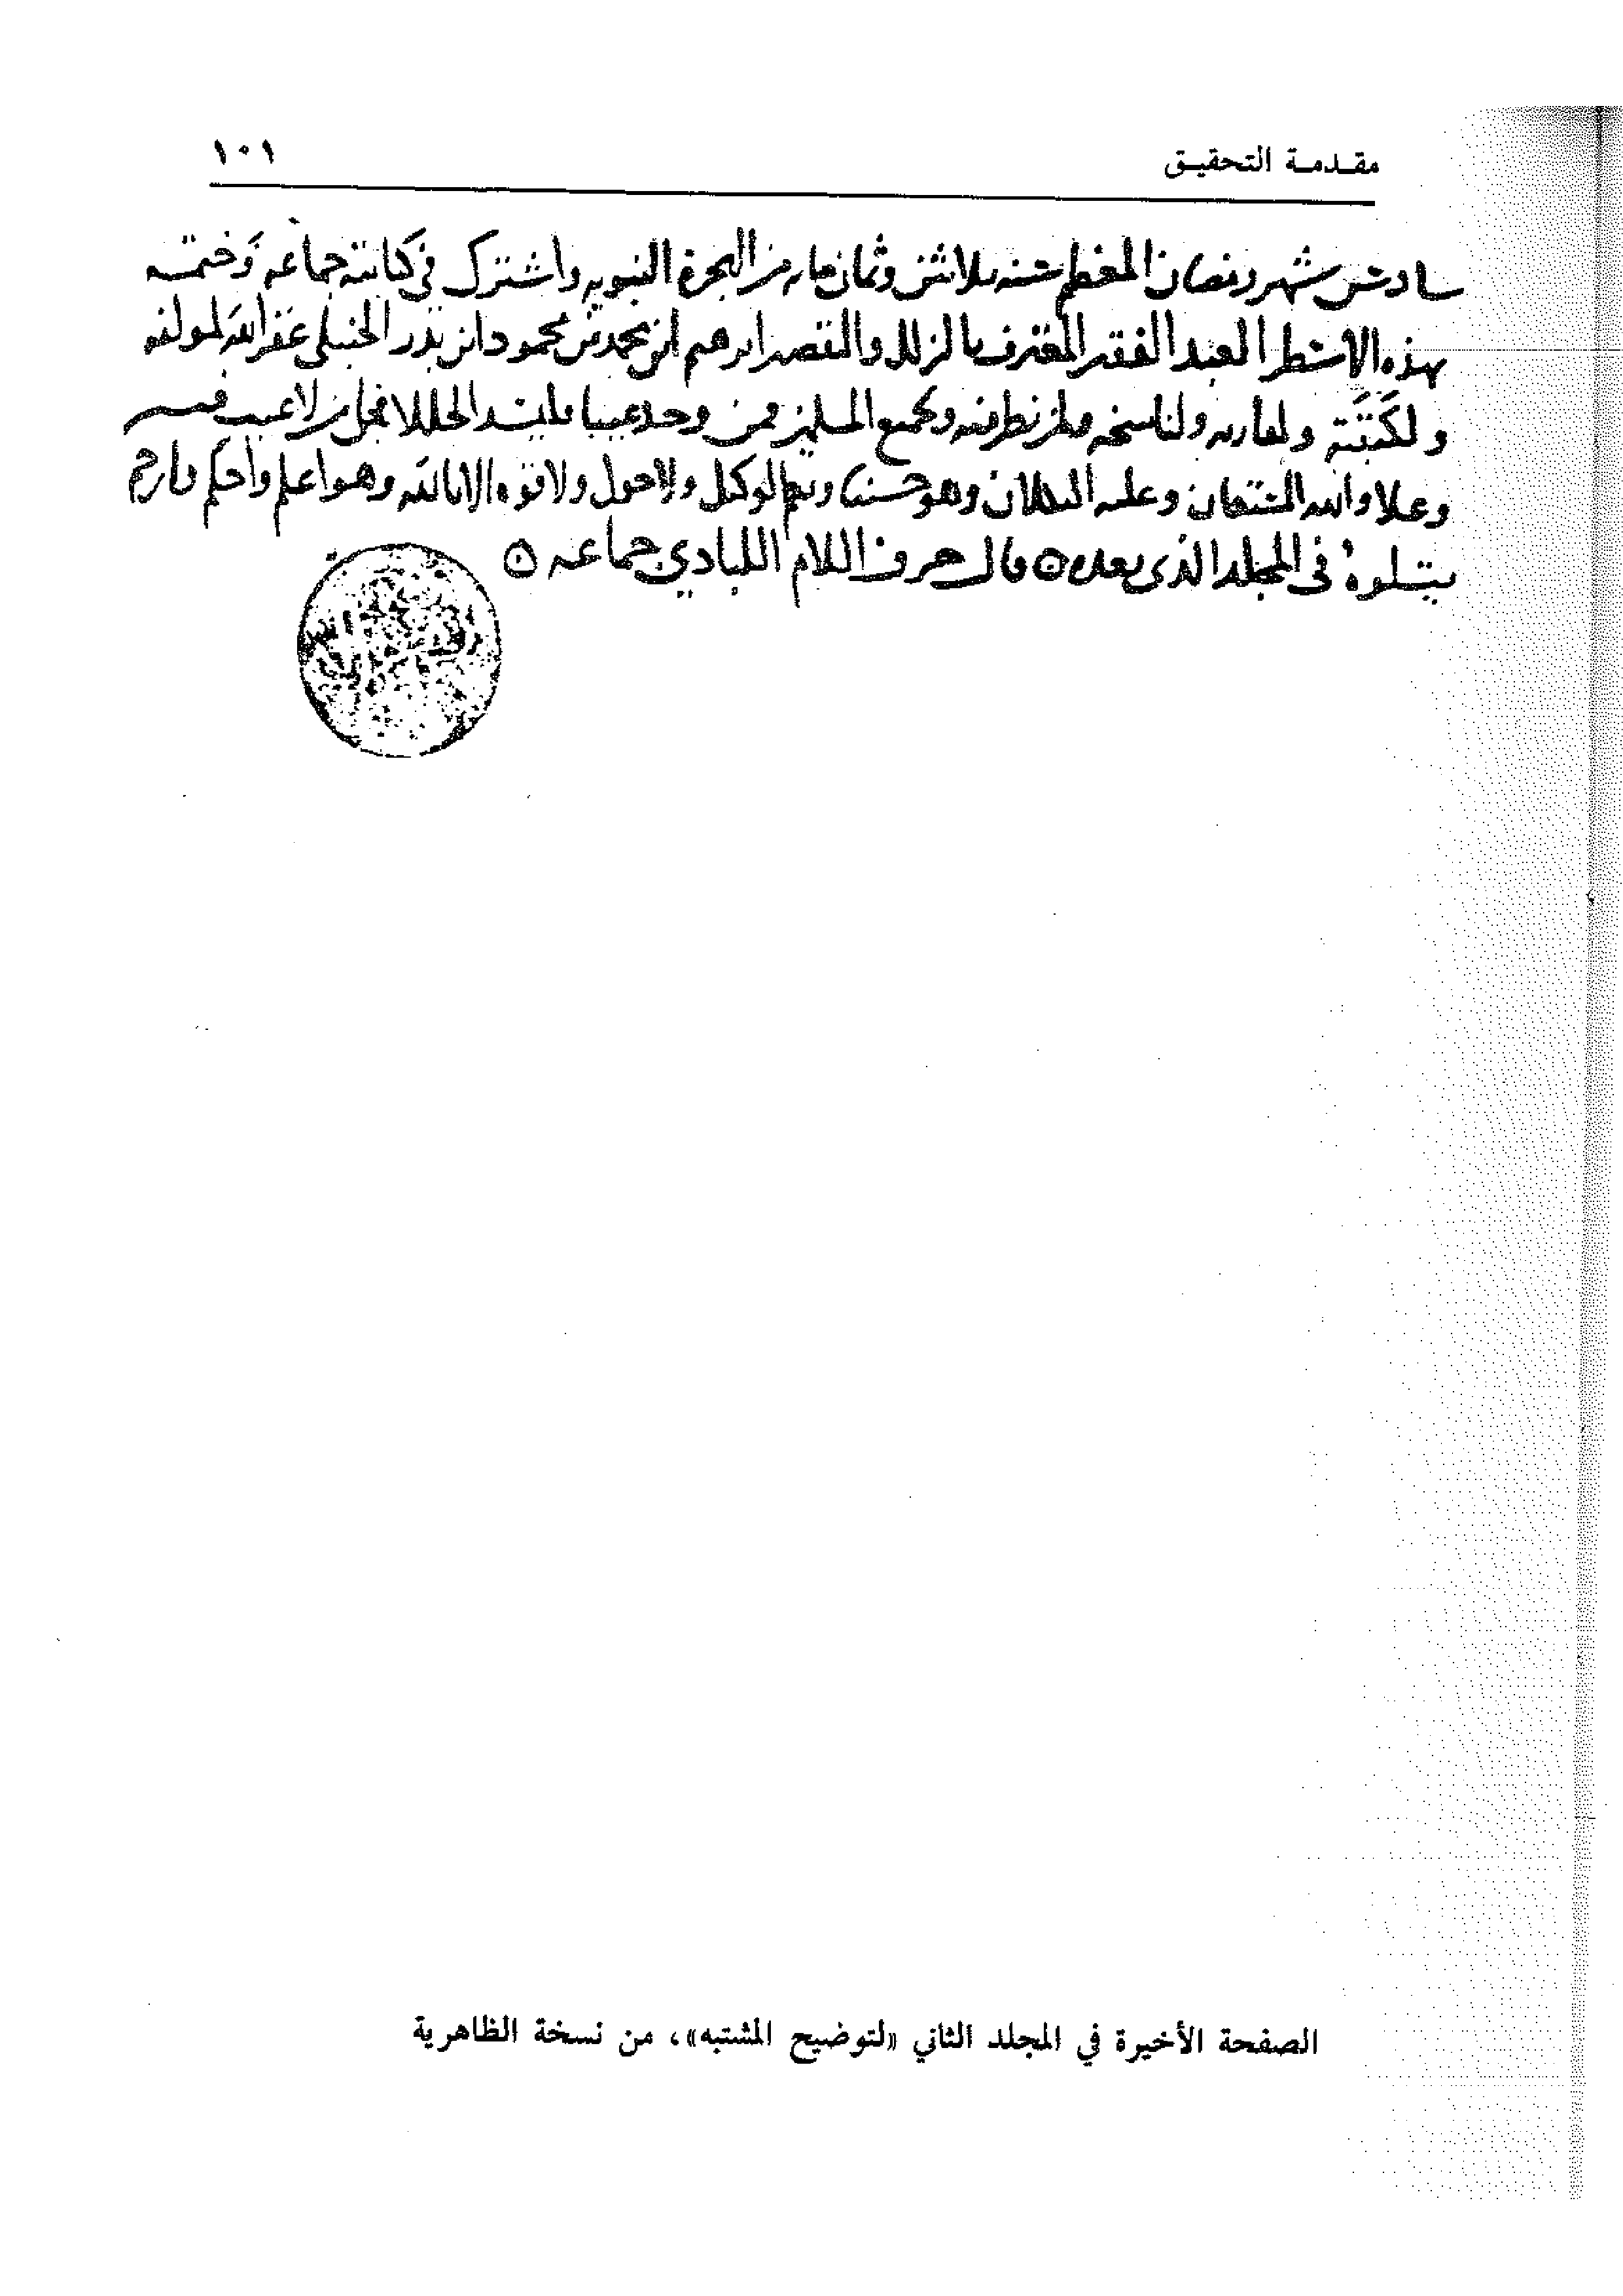 مقدمة التحقيق
١٠١
سادس شهر رمضان المعظم سنه ثلاثين وثمان مايه من الهجرة النبويه واشترك في كتابته جماعه وختمه
بهذه الاسطر العبد الفقير المعترف بالزلل والتقصير ابرهيم ابن محمد بن محمود ابن بدر الحنبلي غفر الله لمولفه
ولكتبته ولقاريه ولناسخه ولمن نظر فيه ولجميع المسلمين فمن وجد عيبا فليسد الخللا فجل من لا عيب فيه
وعلا والله المستعان وعليه التكلان وهو حسبنا ونعم الوكيل ولا حول ولا قوه الا بالله وهو اعلم واحكم وارحم
يتلوه في المجلد الذي بعده ۞ قال حرف اللام اللبادي جماعه ۞
الصفحة الأخيرة في المجلد الثاني «لتوضيح المشتبه»، من نسخة الظاهرية